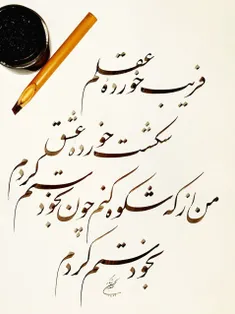 فریب خورده عقلم
شکست خورده عشق
من از که شکوه کنم چون بخود ستم کردم
بخود ستم کردم